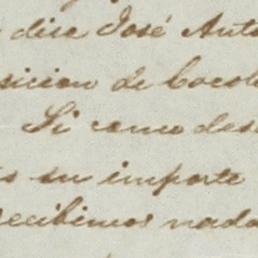 dice José Anto
sicion de Cocol
Si como des
s su importe
recibimos nada